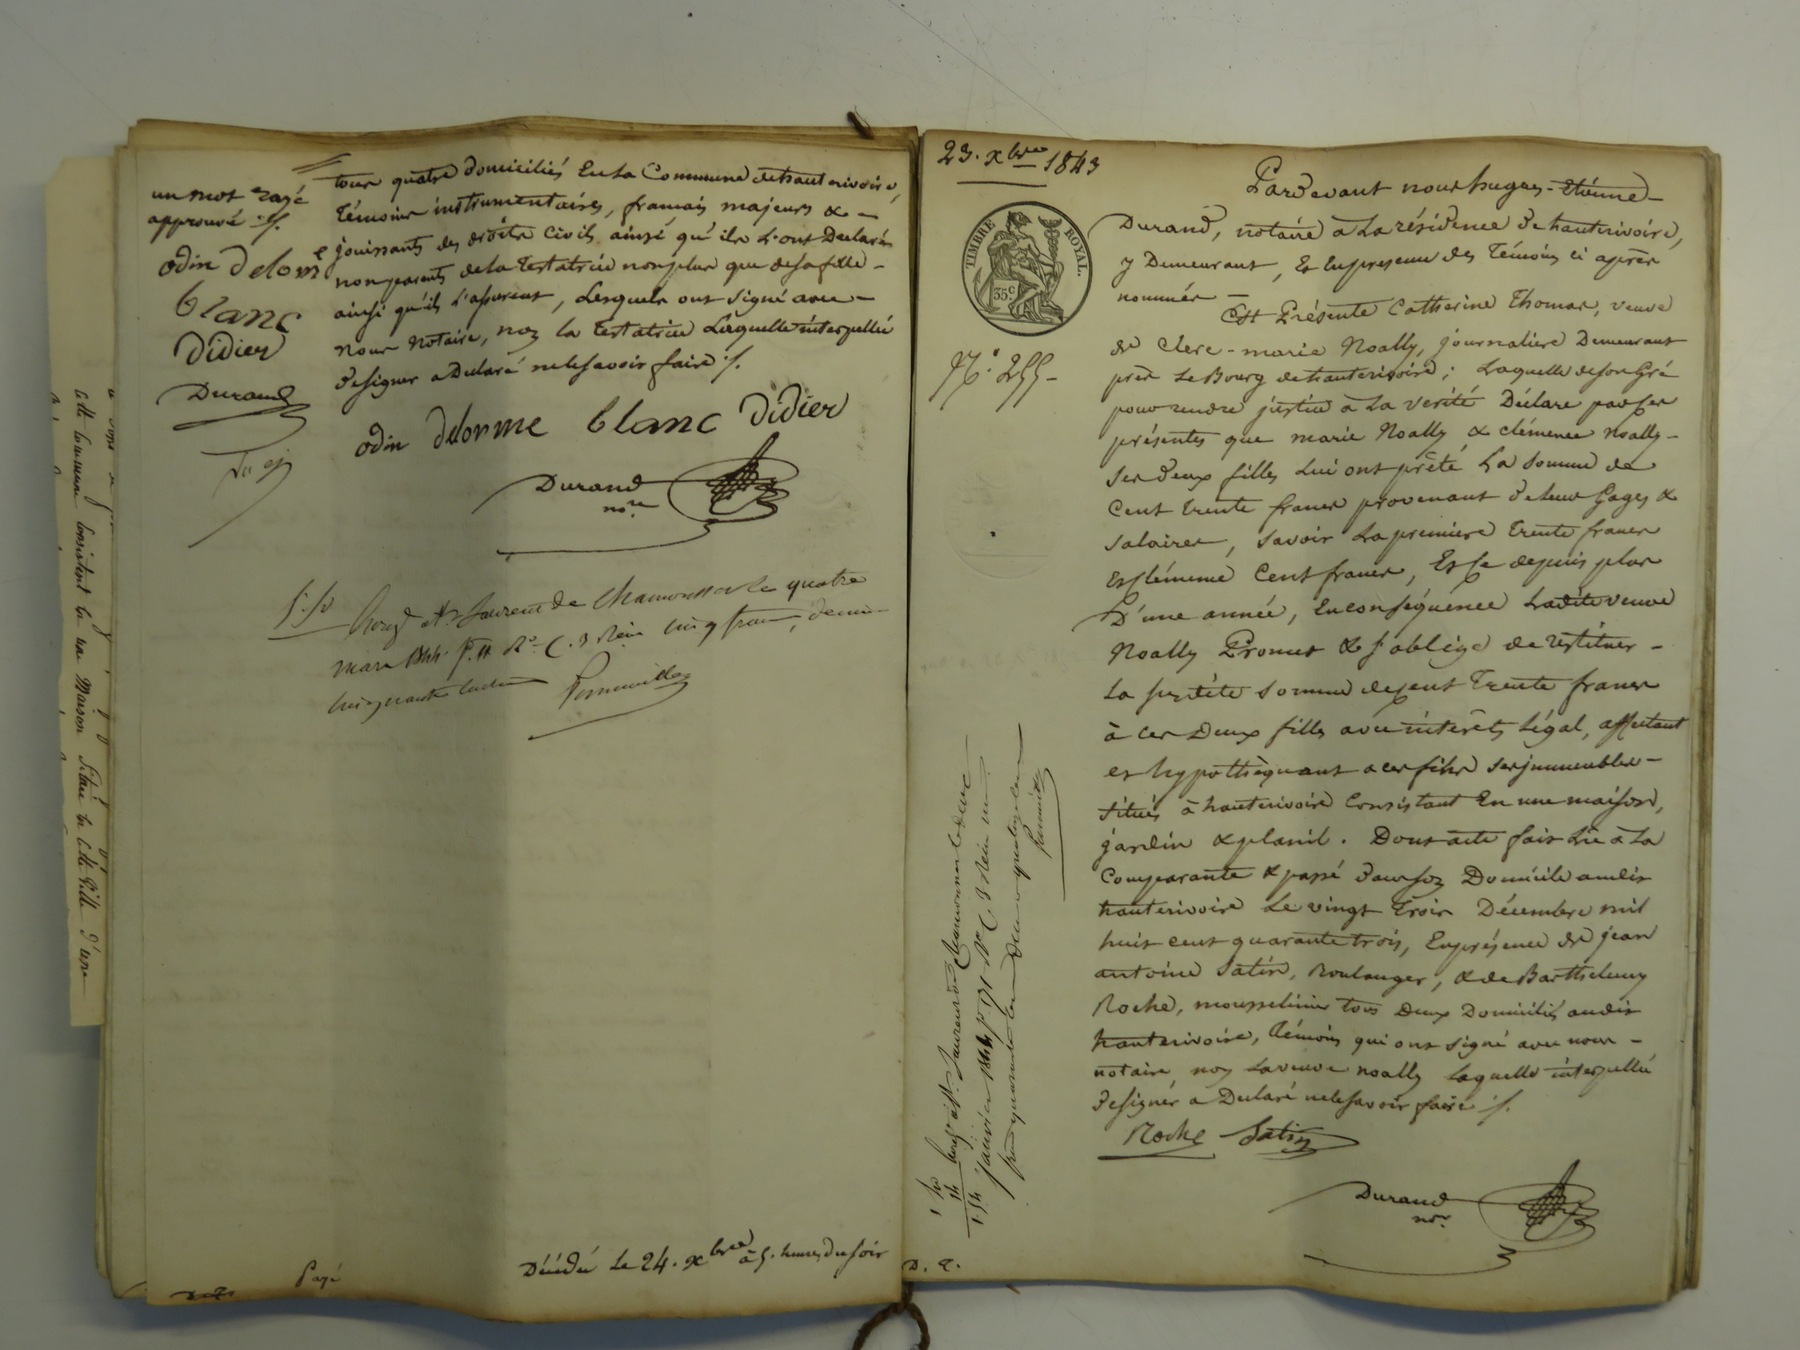 un mot rayé
approuvé ./.
odin delorme
blanc
didier
Durand
tous quatre domiciliés En La Commune de hauterivoire,
témoins instrumentaires, francais majeurs & -
jouissants des droits Civils ainsi qu'ils L'ont Déclaré
non parents de la Testatrice non plus que de sa fille -
ainsi qu'ils L'assurent, Lesquels ont signé avec -
Nous Notaire, non la testatrice Laquelle interpellée
De signer a Déclaré ne le savoir faire ./.
odin delorme blanc didier
Durand
nore
5.50 Enrgé à St Laurent de Chamousset le quatre
mars 1844 f. 11 Ro C. 3 Reçu cinq francs, décime
cinquante centimes
Décédée Le 24. xbre à 5. heures du soir
Payé
23. xbre 1843
TIMBRE ROYAL.
35 c
No. 255 -
Pardevant nous hugues - Etienne -
Durand, notaire à La résidence De hauterivoire,
y Demeurant, Et En presence des Témoins ci après
nommés -
Est Présente Catherine Thomas, veuve
de Clerc - marie Noally, journalière Demeurant
près Le Bourg de hauterivoire; Laquelle de son Gré
pour rendre justice à La vérité Déclare par Ces
présentes que marie Noally & clémence Noally -
ses deux filles Lui ont prêté La Somme de
Cent trente francs provenant de Leurs Gages &
Salaires, Savoir La premiere trente francs
Et Clémence Cent francs, Et Ce depuis plus
D'une année, En conséquence Ladite veuve
Noally Promet & s'oblige de restituer -
La susdite Somme de Cent Trente francs
à Ces Deux filles avec intérêts Légal, affectant
et hypothèquant a ces fins ses immeubles -
situés à hauterivoire Consistant En une maison,
jardin & plassil. Dont acte fait Lu à La
Comparante & passé dans son Domicile audit
hauterivoire Le vingt Trois Décembre mil
huit cent quarante trois, En présence de jean
antoine Satin, Boulanger, & de Barthelemy
Roche, mousselinier tous Deux Domiciliés audit
hauterivoire, Témoins qui ont signé avec nous -
notaire non La veuve Noally Laquelle interpellée
De signer a Déclaré ne le savoir faire ./.
Roche Satin
Durand
nore
1 40
14
1.54
Enrgé à St. Laurent de Chamousset le deux
janvier 1844 fo 91 Ro C. 3 Reçu un
franc quarante centimes
D. E.